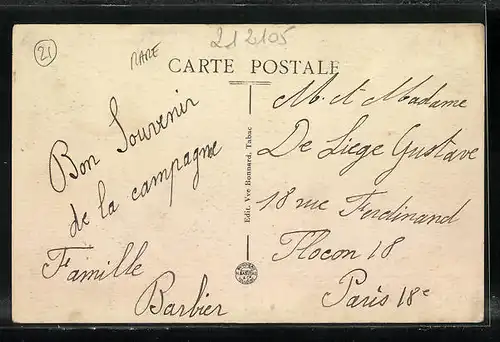 21
RARE
212105
CARTE POSTALE
Bon Souvenir
de la campagne
Famille
Barbier
Edit. Vve Bonnard, Tabac
M. et Madame
De Liege Gustave
18 rue Ferdinand
Flocon 18
Paris 18e